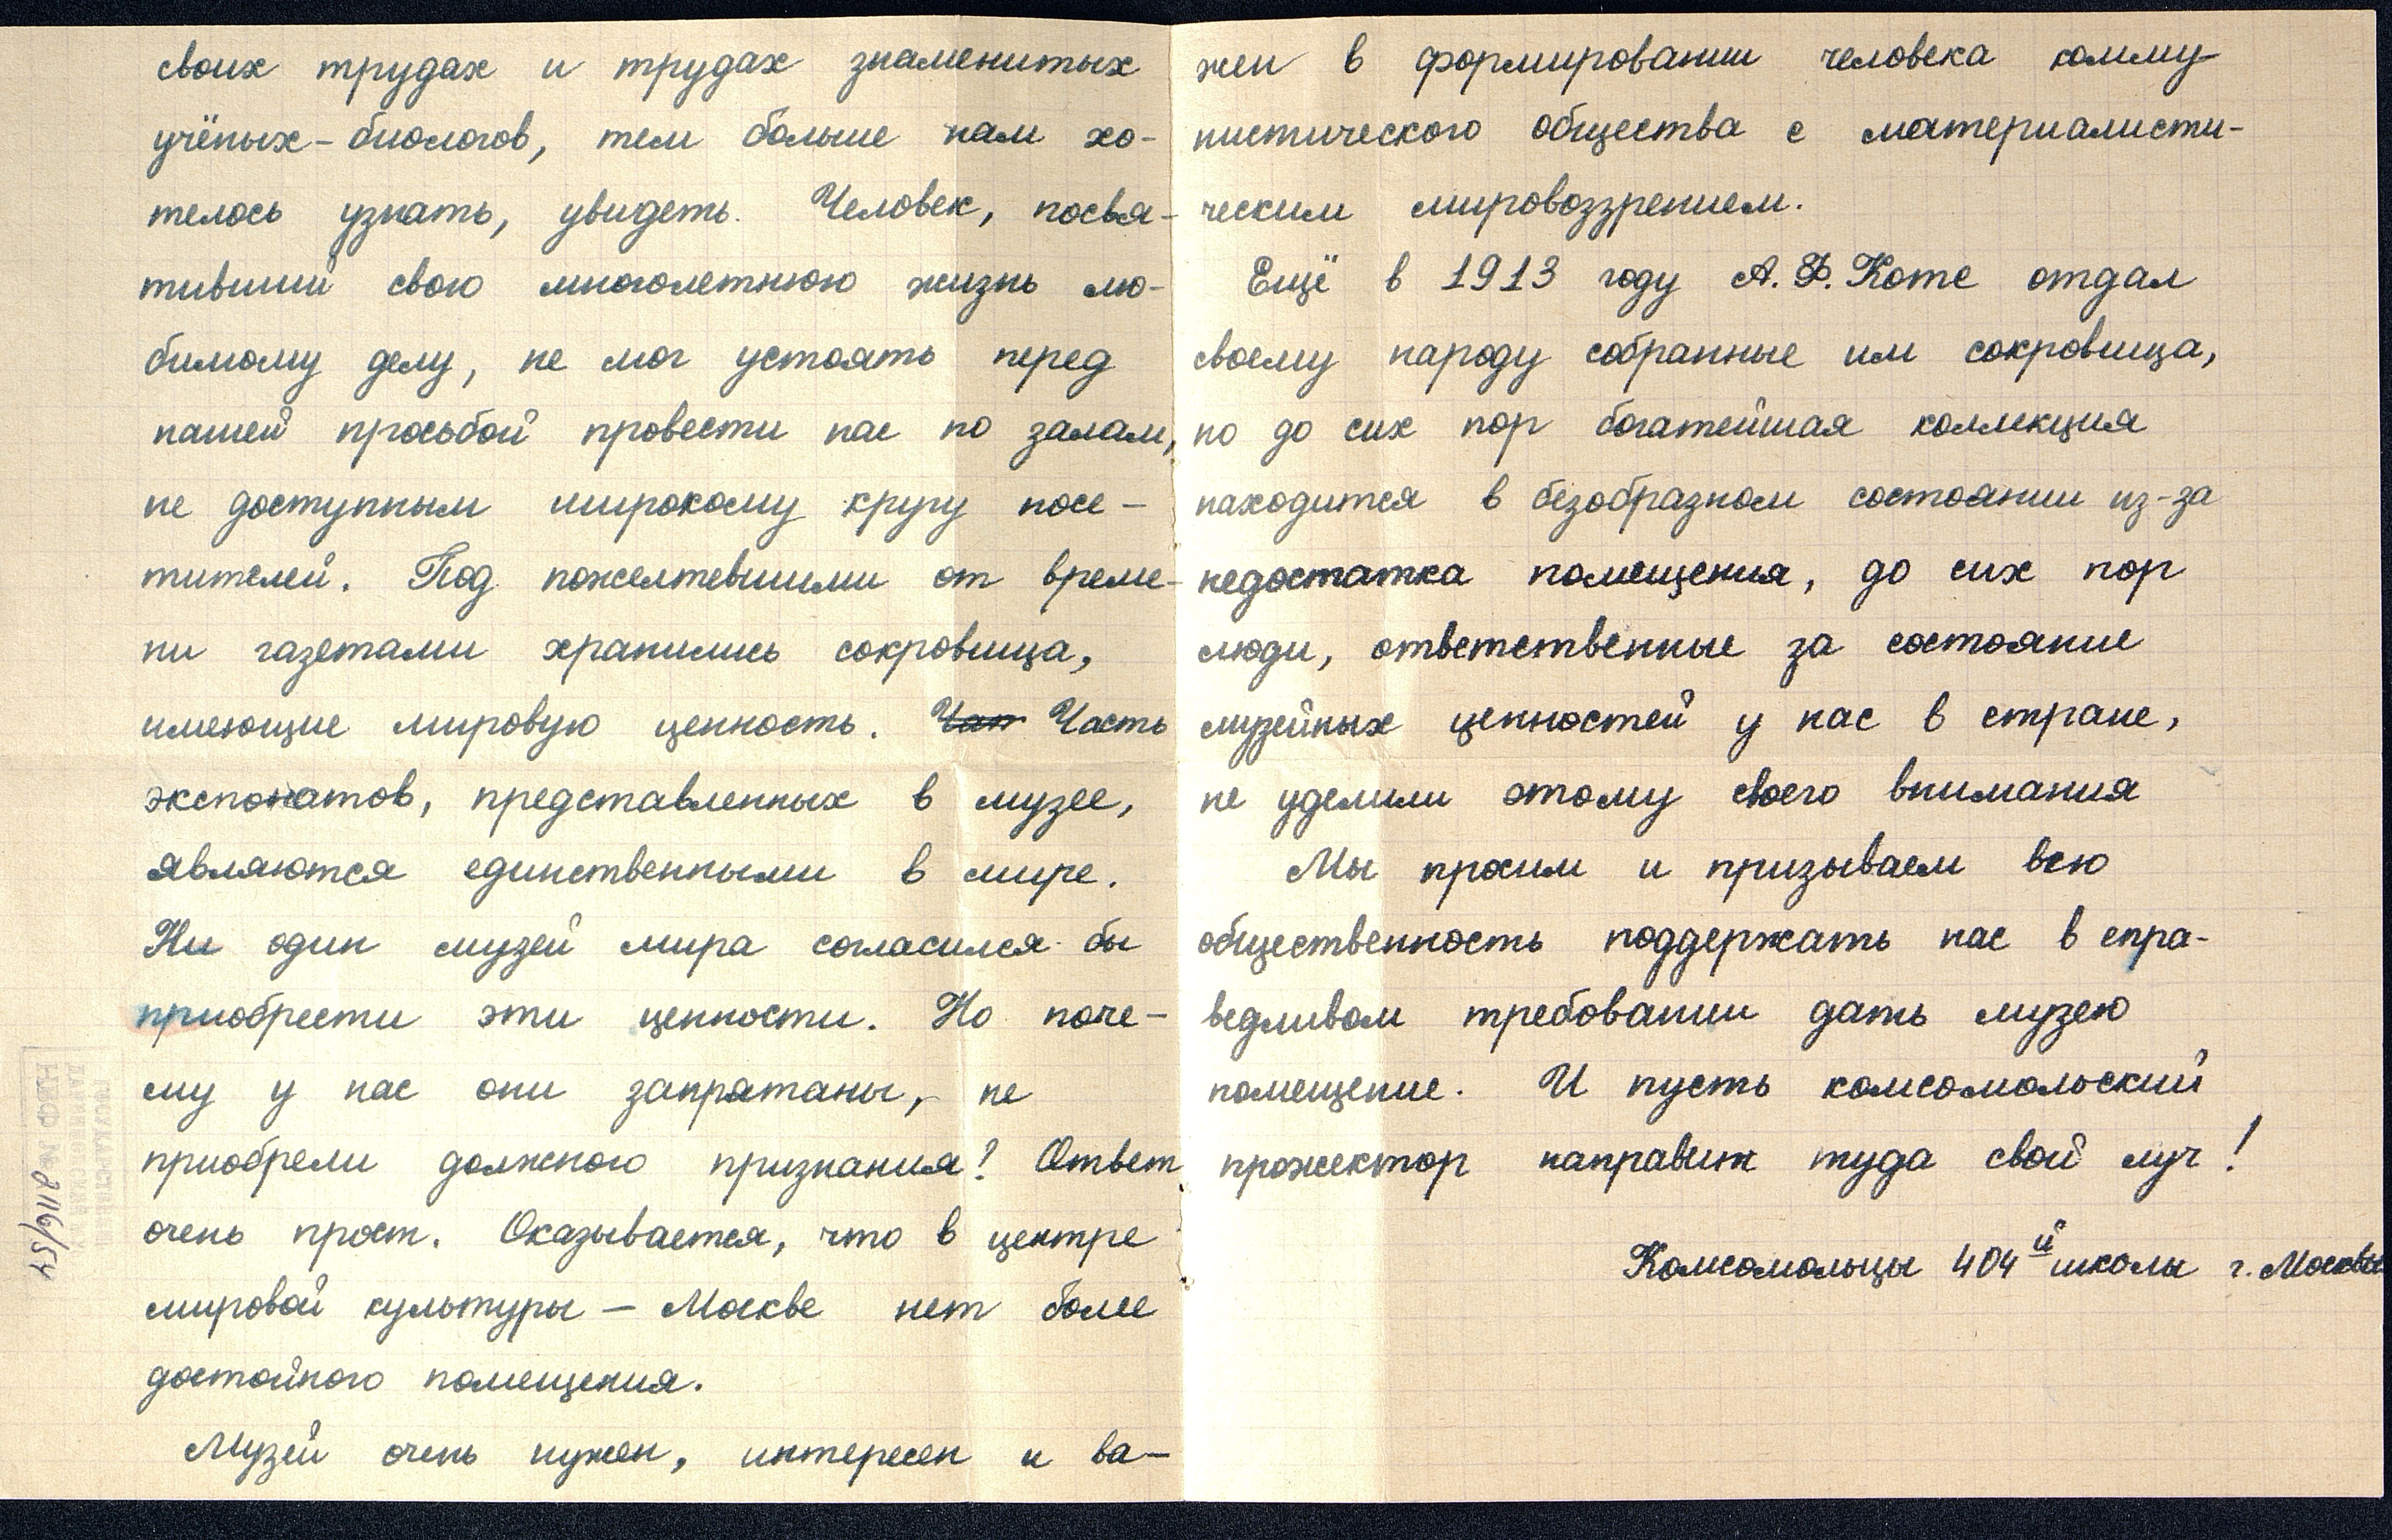 своих трудах и трудах знаменитых
учёных-биологов, тем больше нам хо-
телось узнать, увидеть. Человек, посвя-
тивший свою многолетнюю жизнь лю-
бимому делу, не мог устоять перед
нашей просьбой провести нас по залам,
не доступным широкому кругу посе-
тителей. Под пожелтевшими от време-
ни газетами хранились сокровища,
имеющие мировую ценность. Час Часть
экспонатов, представленных в музее,
являются единственными в мире.
Ни один музей мира согласился бы
приобрести эти ценности. Но поче-
му у нас они запрятаны, не
приобрели должного признания? Ответ
очень прост. Оказывается, что в центре
мировой культуры – Москве нет более
достойного помещения.
Музей очень нужен, интересен и ва-
жен в формировании человека комму
нистического общества с материалисти-
ческим мировоззрением.
Ещё в 1913 году А. Ф. Котс отдал
своему народу собранные им сокровища,
но до сих пор богатейшая коллекция
находится в безобразном состоянии из-за
недостатка помещения, до сих пор
люди, ответственные за состояние
музейных ценностей у нас в стране,
не уделили этому своего внимания
Мы просим и призываем всю
общественность поддержать нас в спра-
ведливом требовании дать музею
помещение. И пусть комсомольский
прожектор направит туда свой луч!
Комсомольцы 404й школы г. Москвы
№ 9116/54